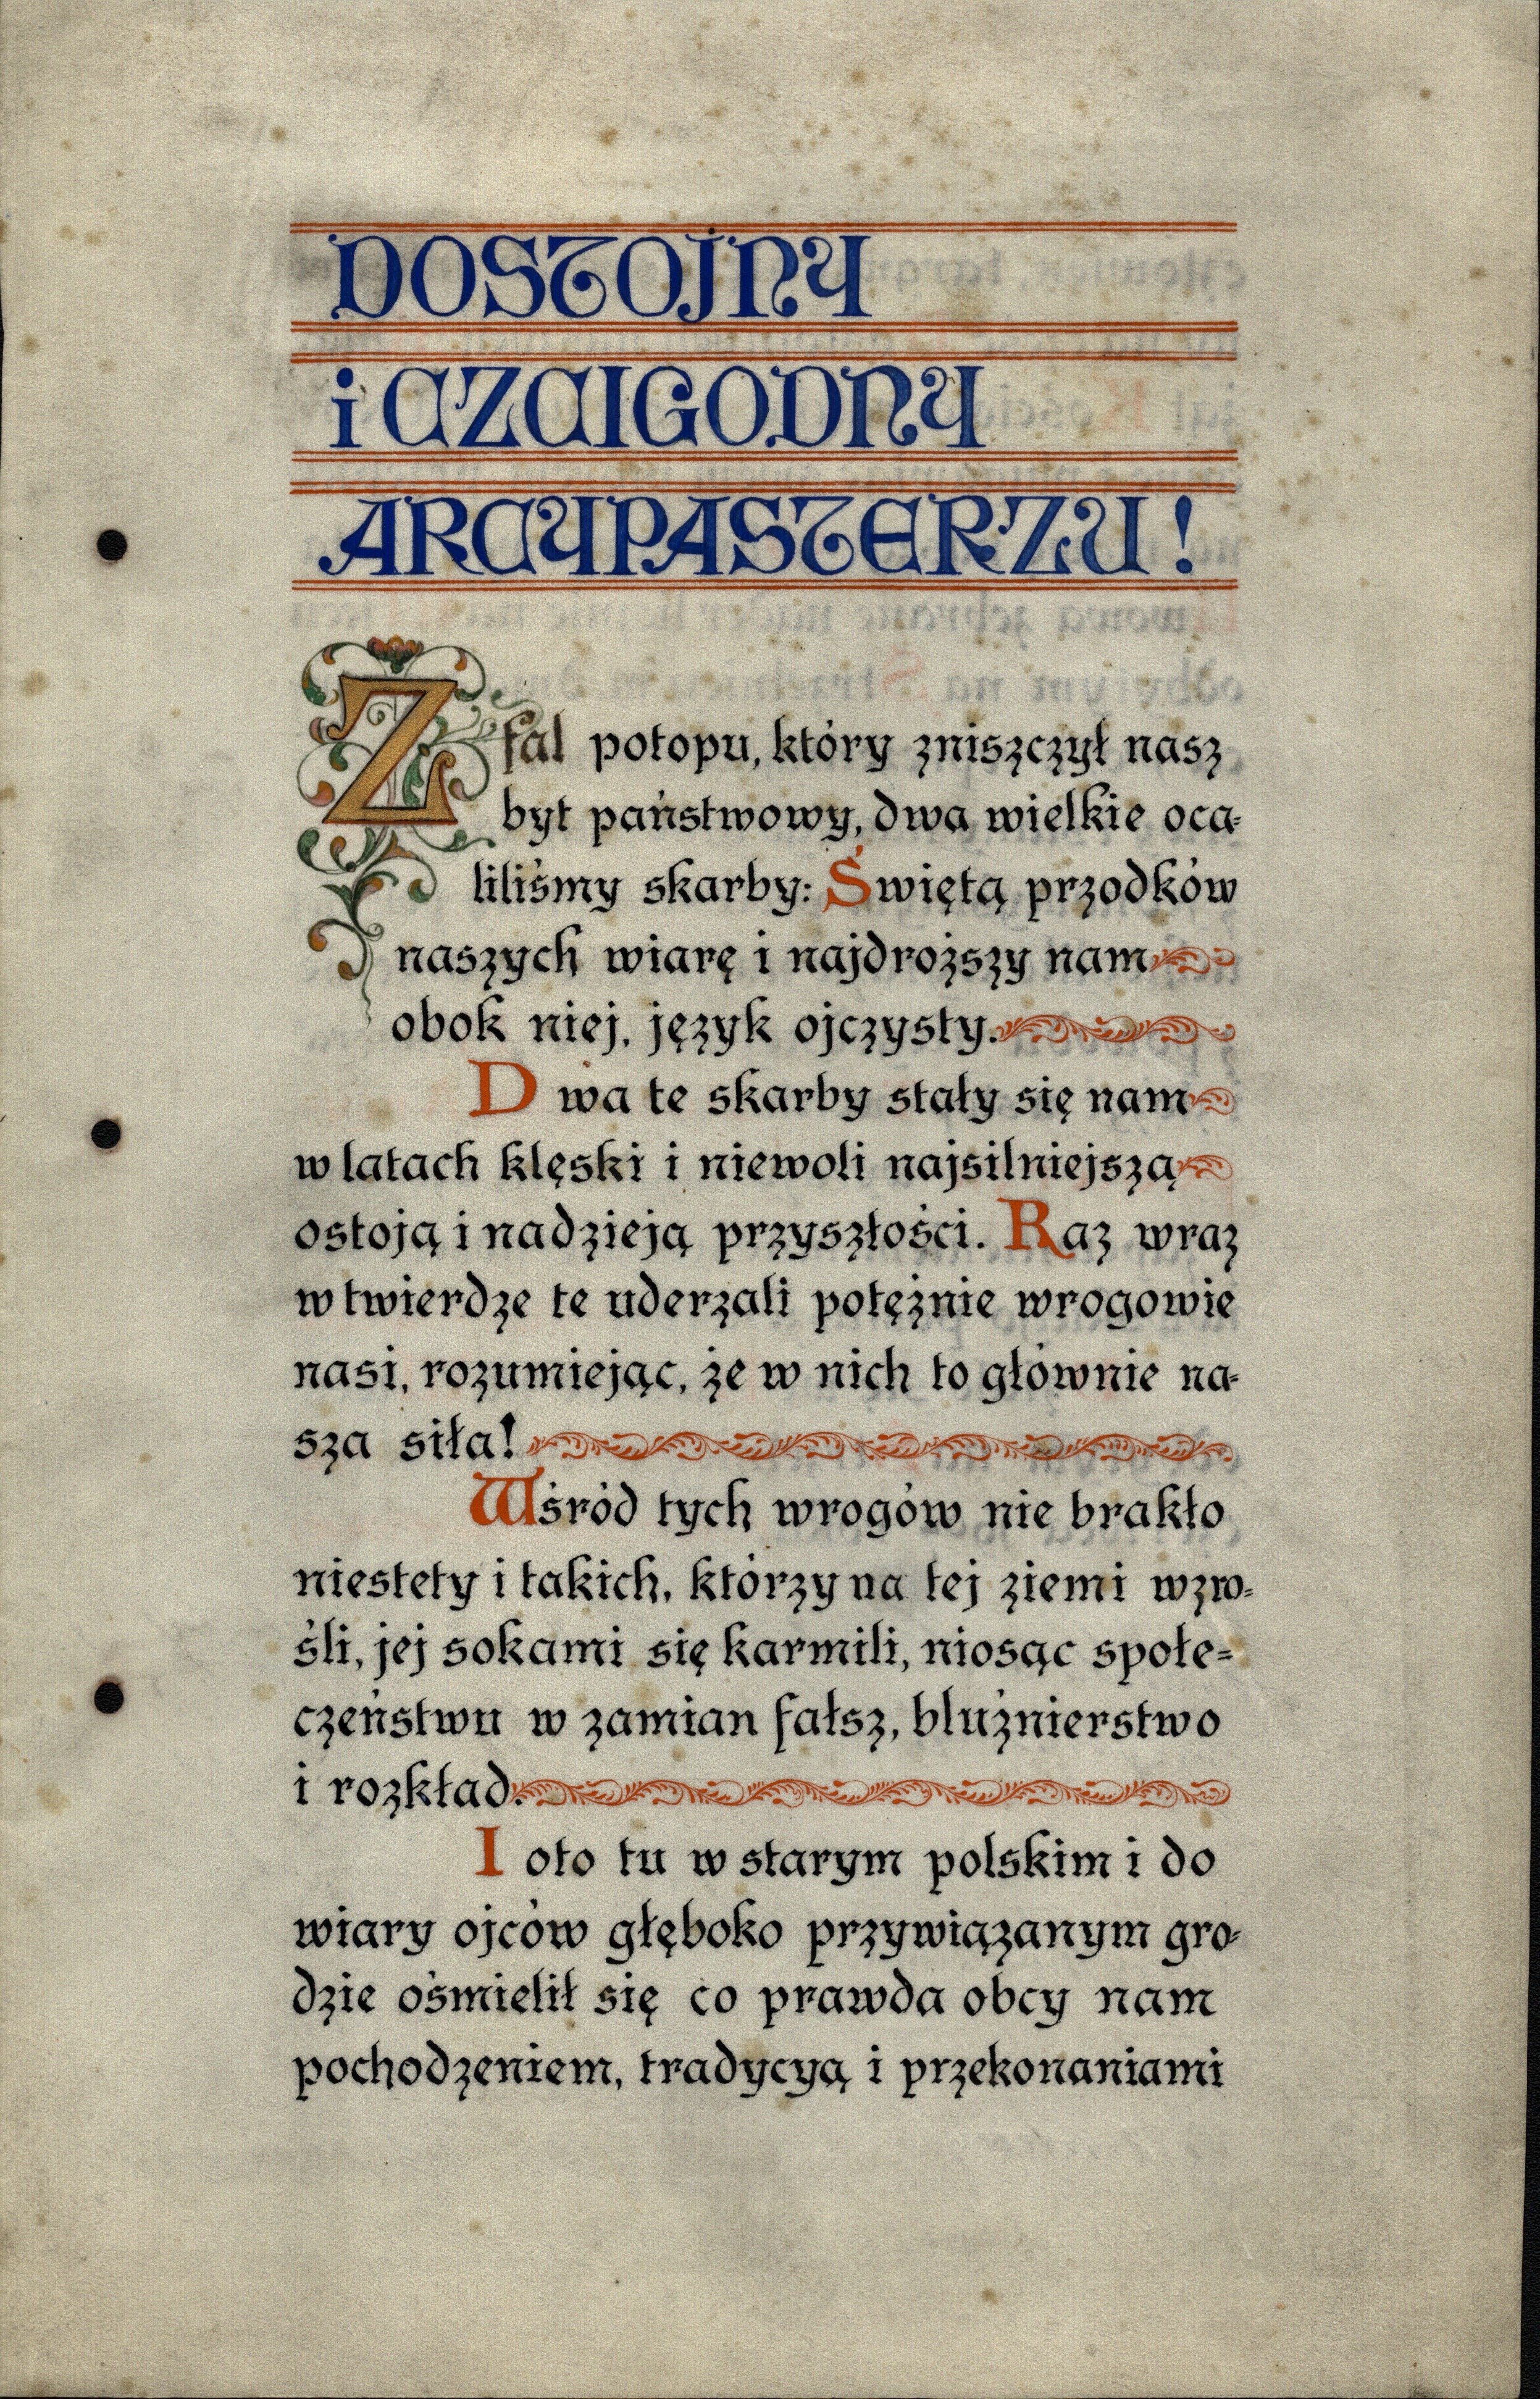 DOSTOJNY
i CZCIGODNY
ARCYPASTERZU!
Z fal potopu, który zniszczył nasz
byt państwowy, dwa wielkie oca-
liliśmy skarby: Świętą przodków
naszych wiarę i najdroższy nam
obok niej, język ojczysty.
Dwa te skarby stały się nam
w latach klęski i niewoli najsilniejszą
ostoją i nadzieją przyszłości. Raz wraz
w twierdze te uderzali potężnie wrogowie
nasi, rozumiejąc, że w nich to głównie na-
sza siła!
Wśród tych wrogów nie brakło
niestety i takich, którzy na tej ziemi wzro-
śli, jej sokami się karmili, niosąc społe-
czeństwu w zamian fałsz, bluźnierstwo
i rozkład.
I oto tu w starym polskim i do
wiary ojców głęboko przywiązanym gro-
dzie ośmielił się co prawda obcy nam
pochodzeniem, tradycyą i przekonaniami